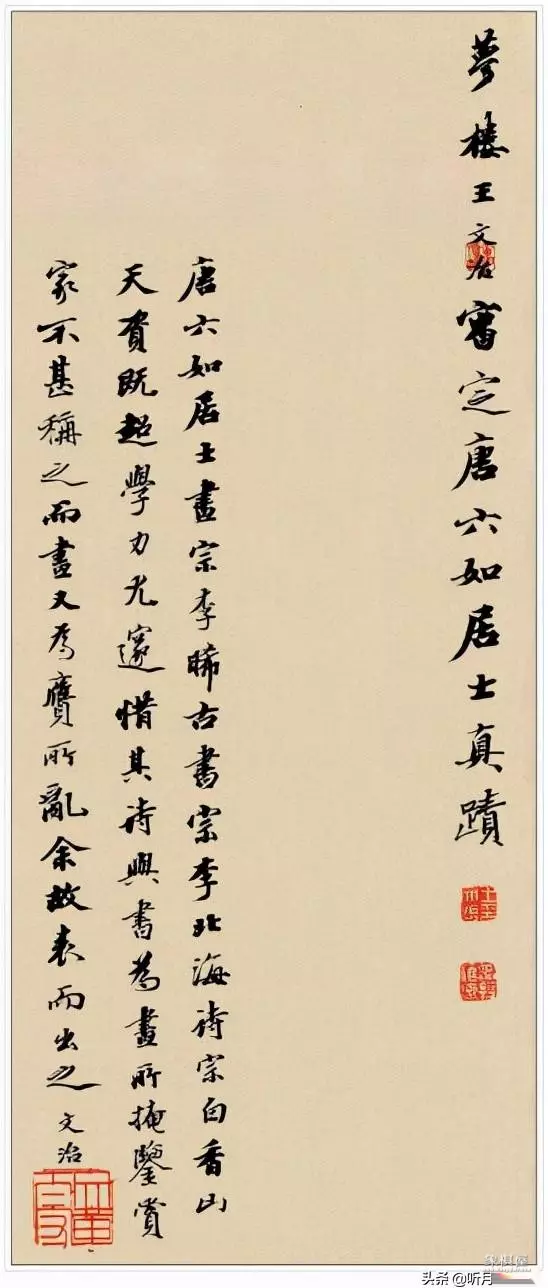 夢樓王文治審定唐六如居士真蹟
唐六如居士畫宗李晞古書宗李北海詩宗白香山
天資既超學力尤邃惜其詩與書為畫所掩鑒賞
家不甚稱之而畫又為贗所亂余故表而出之文治
头条@听月